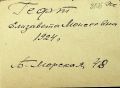 Гефт
Елизавета Моисеевна
1924г.
Б. Морская, 48